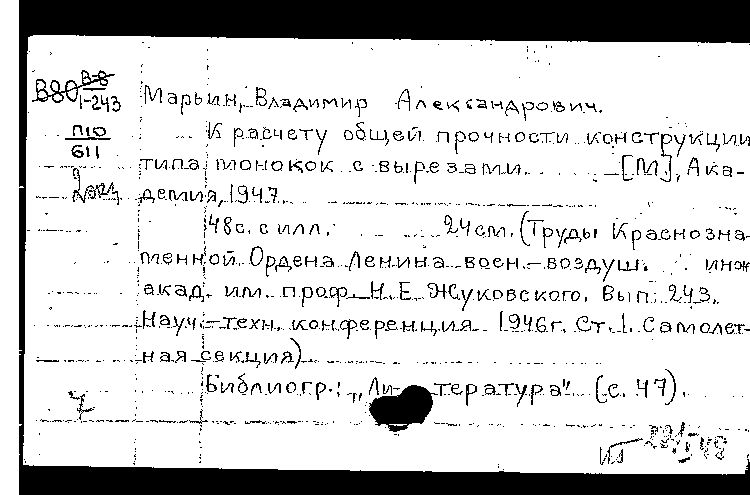 В-8
В80 1-243
П10
611
2 экз
Марьин, Владимир Александрович.
К расчету общей прочности конструкции
типа монокок с вырезами. [М], Ака-
демия, 1947.
48с. с илл. 24см. (Труды Краснозна-
менной Ордена Ленина воен.-воздуш. инж
акад. им. проф. Н.Е. Жуковского. Вып. 243.
Науч.-техн. конференция 1946г. Ст. 1. Самолет-
ная секция).
Библиогр.: "Ли-тература" (с. 47).
7